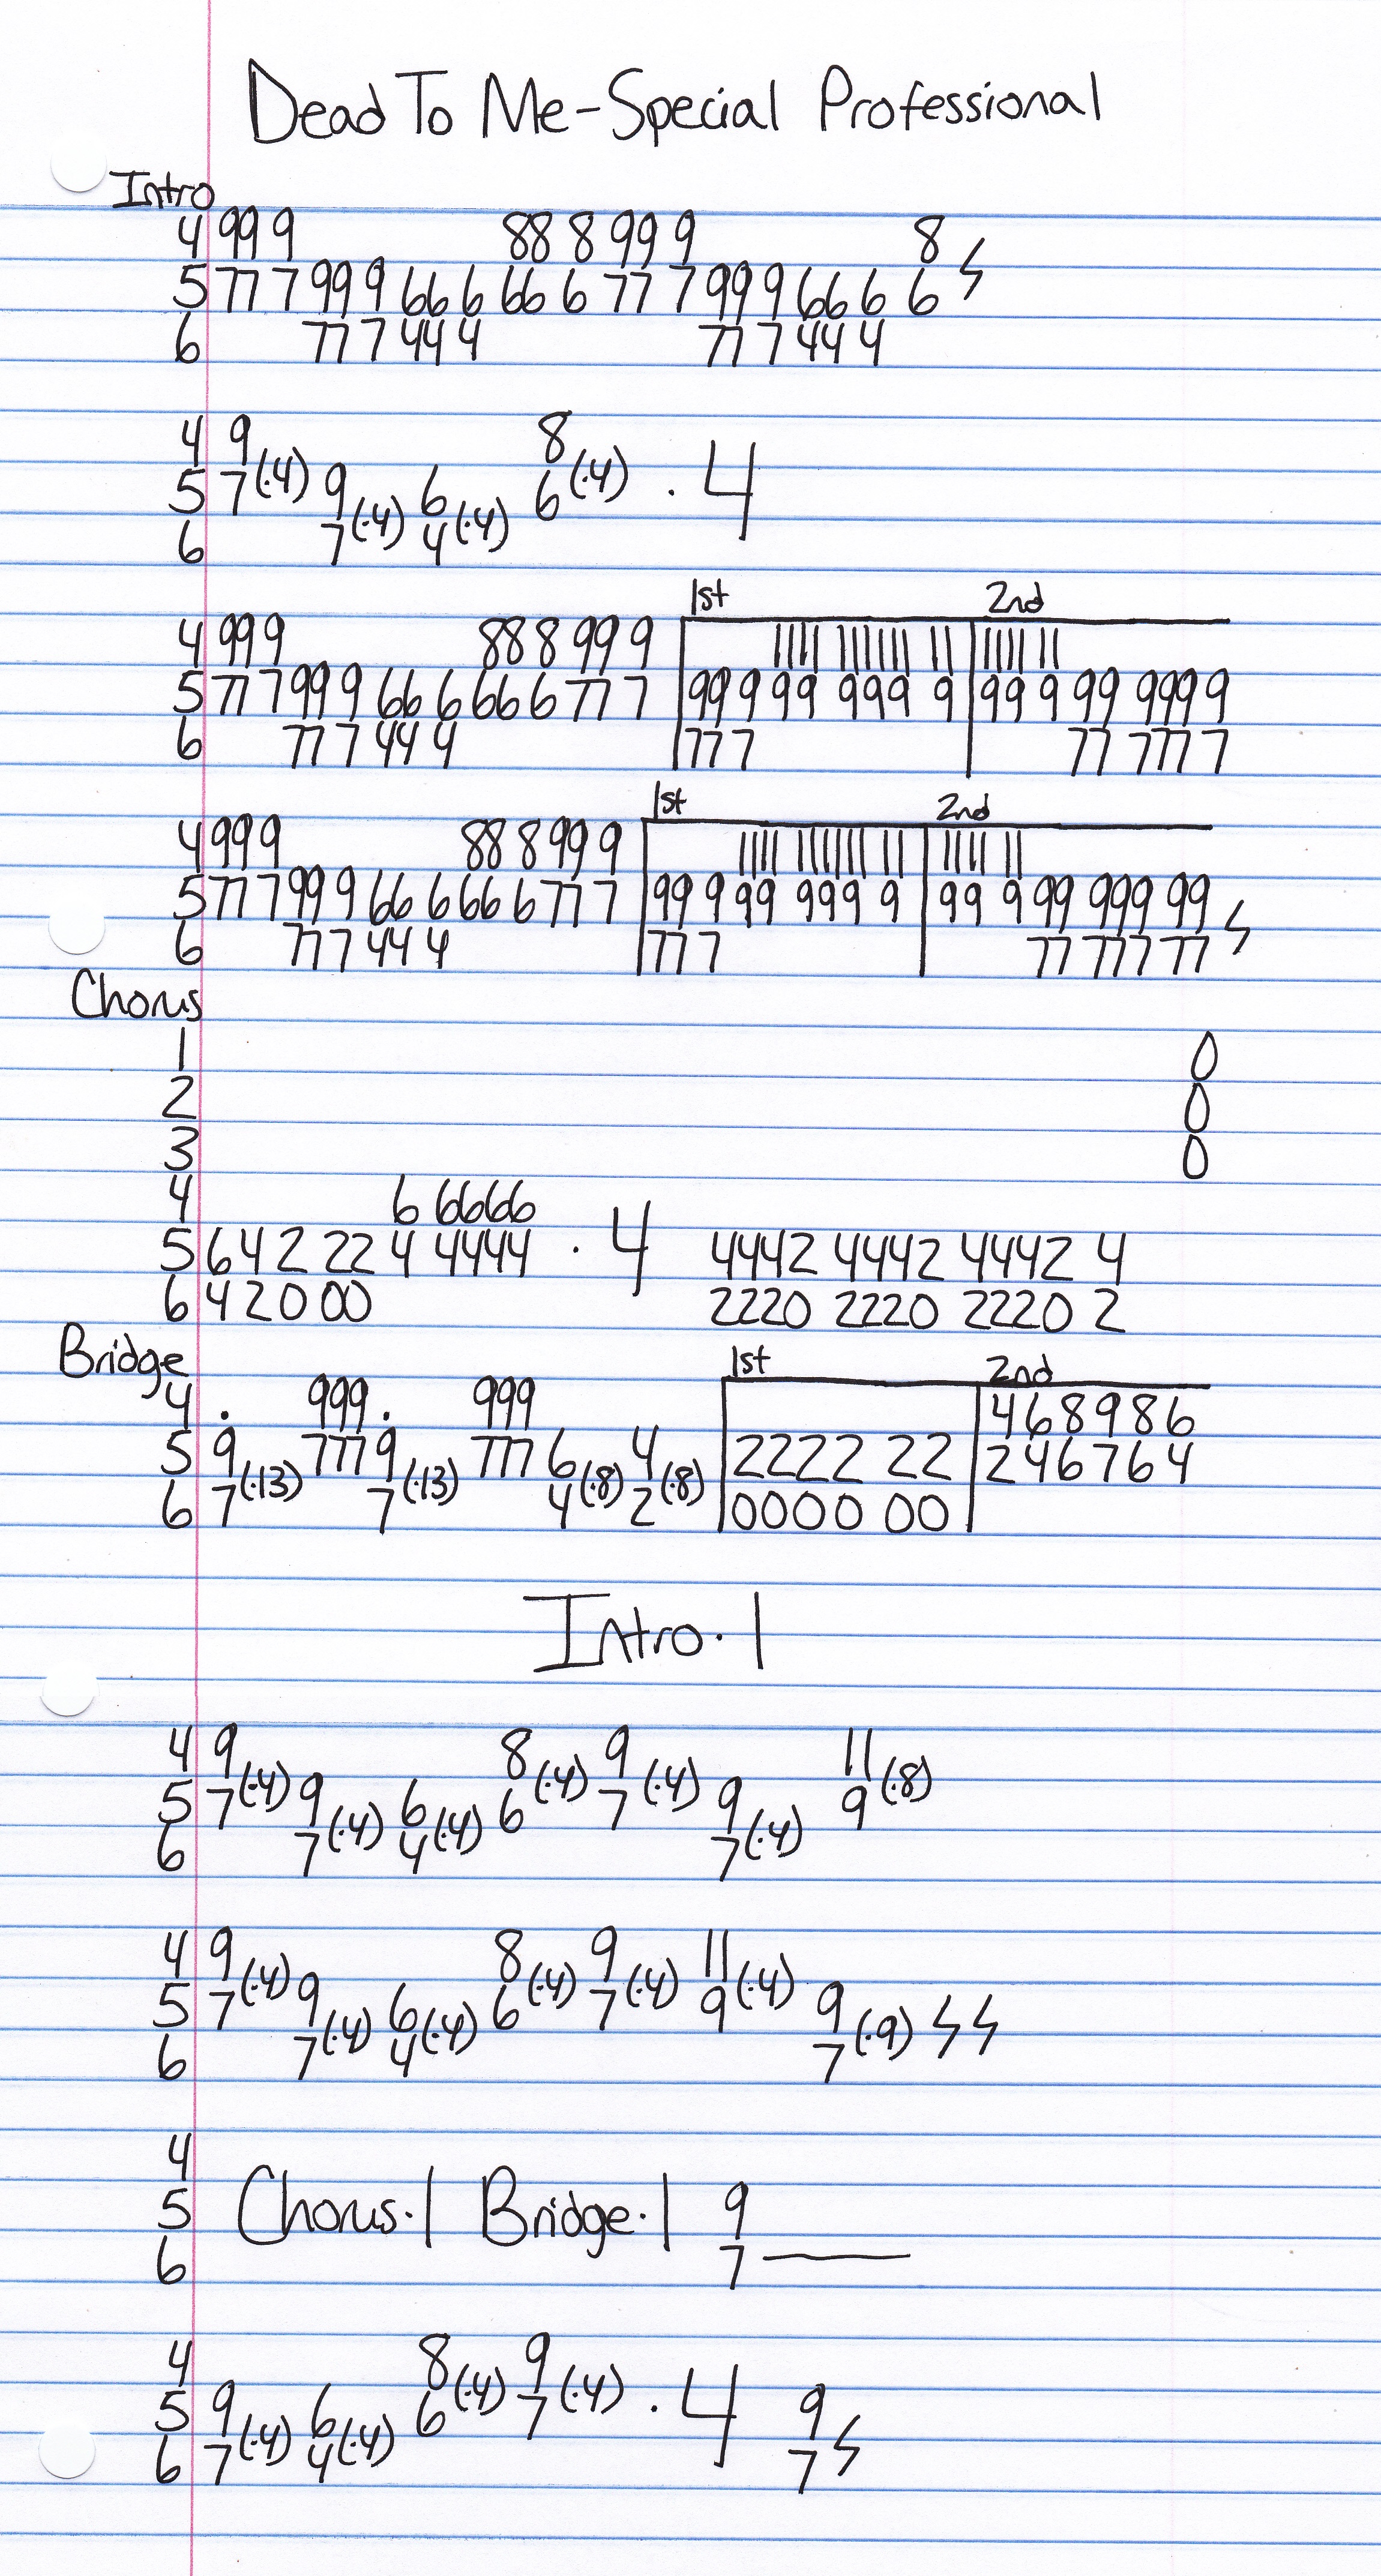 Dead To Me-Special Professional
Intro
4 999 9 88 8 99 9 8
5 77 7 99 9 66 6 66 6 77 7 99 9 66 6 6
6 77 7 44 4 77 7 44 4
4 9 8
5 7(·4) 9 6 6(·4) · 4
6 7(·4) 4(·4)
1st 2nd
4 999 88 8 99 9 11 11 11 11 11 11 11 11 11
5 77 7 99 9 66 6 66 6 77 7 99 9 99 999 9 99 9 99 999 9
6 77 7 44 4 77 7 77 777 7
1st 2nd
4 999 88 8 99 9 11 11 11 11 11 11 11 11 11
5 77 7 99 9 66 6 66 6 77 7 99 9 99 999 9 99 9 99 999 99
6 77 7 44 4 77 7 77 777 77
Chorus
1 0
2 0
3 0
4 6 6666
5 6 4 2 22 4 4444 · 4 4442 4442 4442 4
6 4 2 0 00 2220 2220 2220 2
Bridge
1st 2nd
4 · 999 · 999 4 6 8 9 8 6
5 9 777 9 777 6 4 2222 22 2 4 6 7 6 4
6 7(·13) 7(·13) 4(·8) 2(·8) 0000 00
Intro·1
4 9 8 9 11
5 7(·4) 9 6 6(·4) 7(·4) 9 9(·8)
6 7(·4) 4(·4) 7(·4)
4 9 8 9 11
5 7(·4) 9 6 6(·4) 7(·4) 9(·4) 9
6 7(·4) 4(·4) 7(·9)
4
5 Chorus·1 Bridge·1 9
6 7
4 8 9
5 9 6 6(·4) 7(·4) · 4 9
6 7(·4) 4(·4) 7